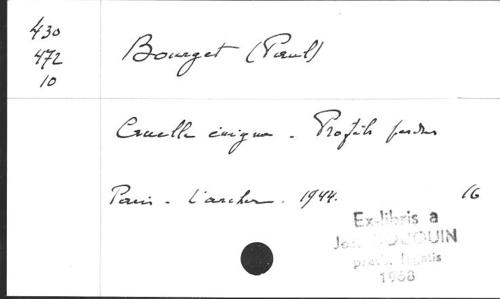 430
472
10
Bourget (Paul)
Cruelle énigme - Profils perdus
Paris - L'archer. 1944. 16
Ex-libris a
Jos.
presb. 
1968